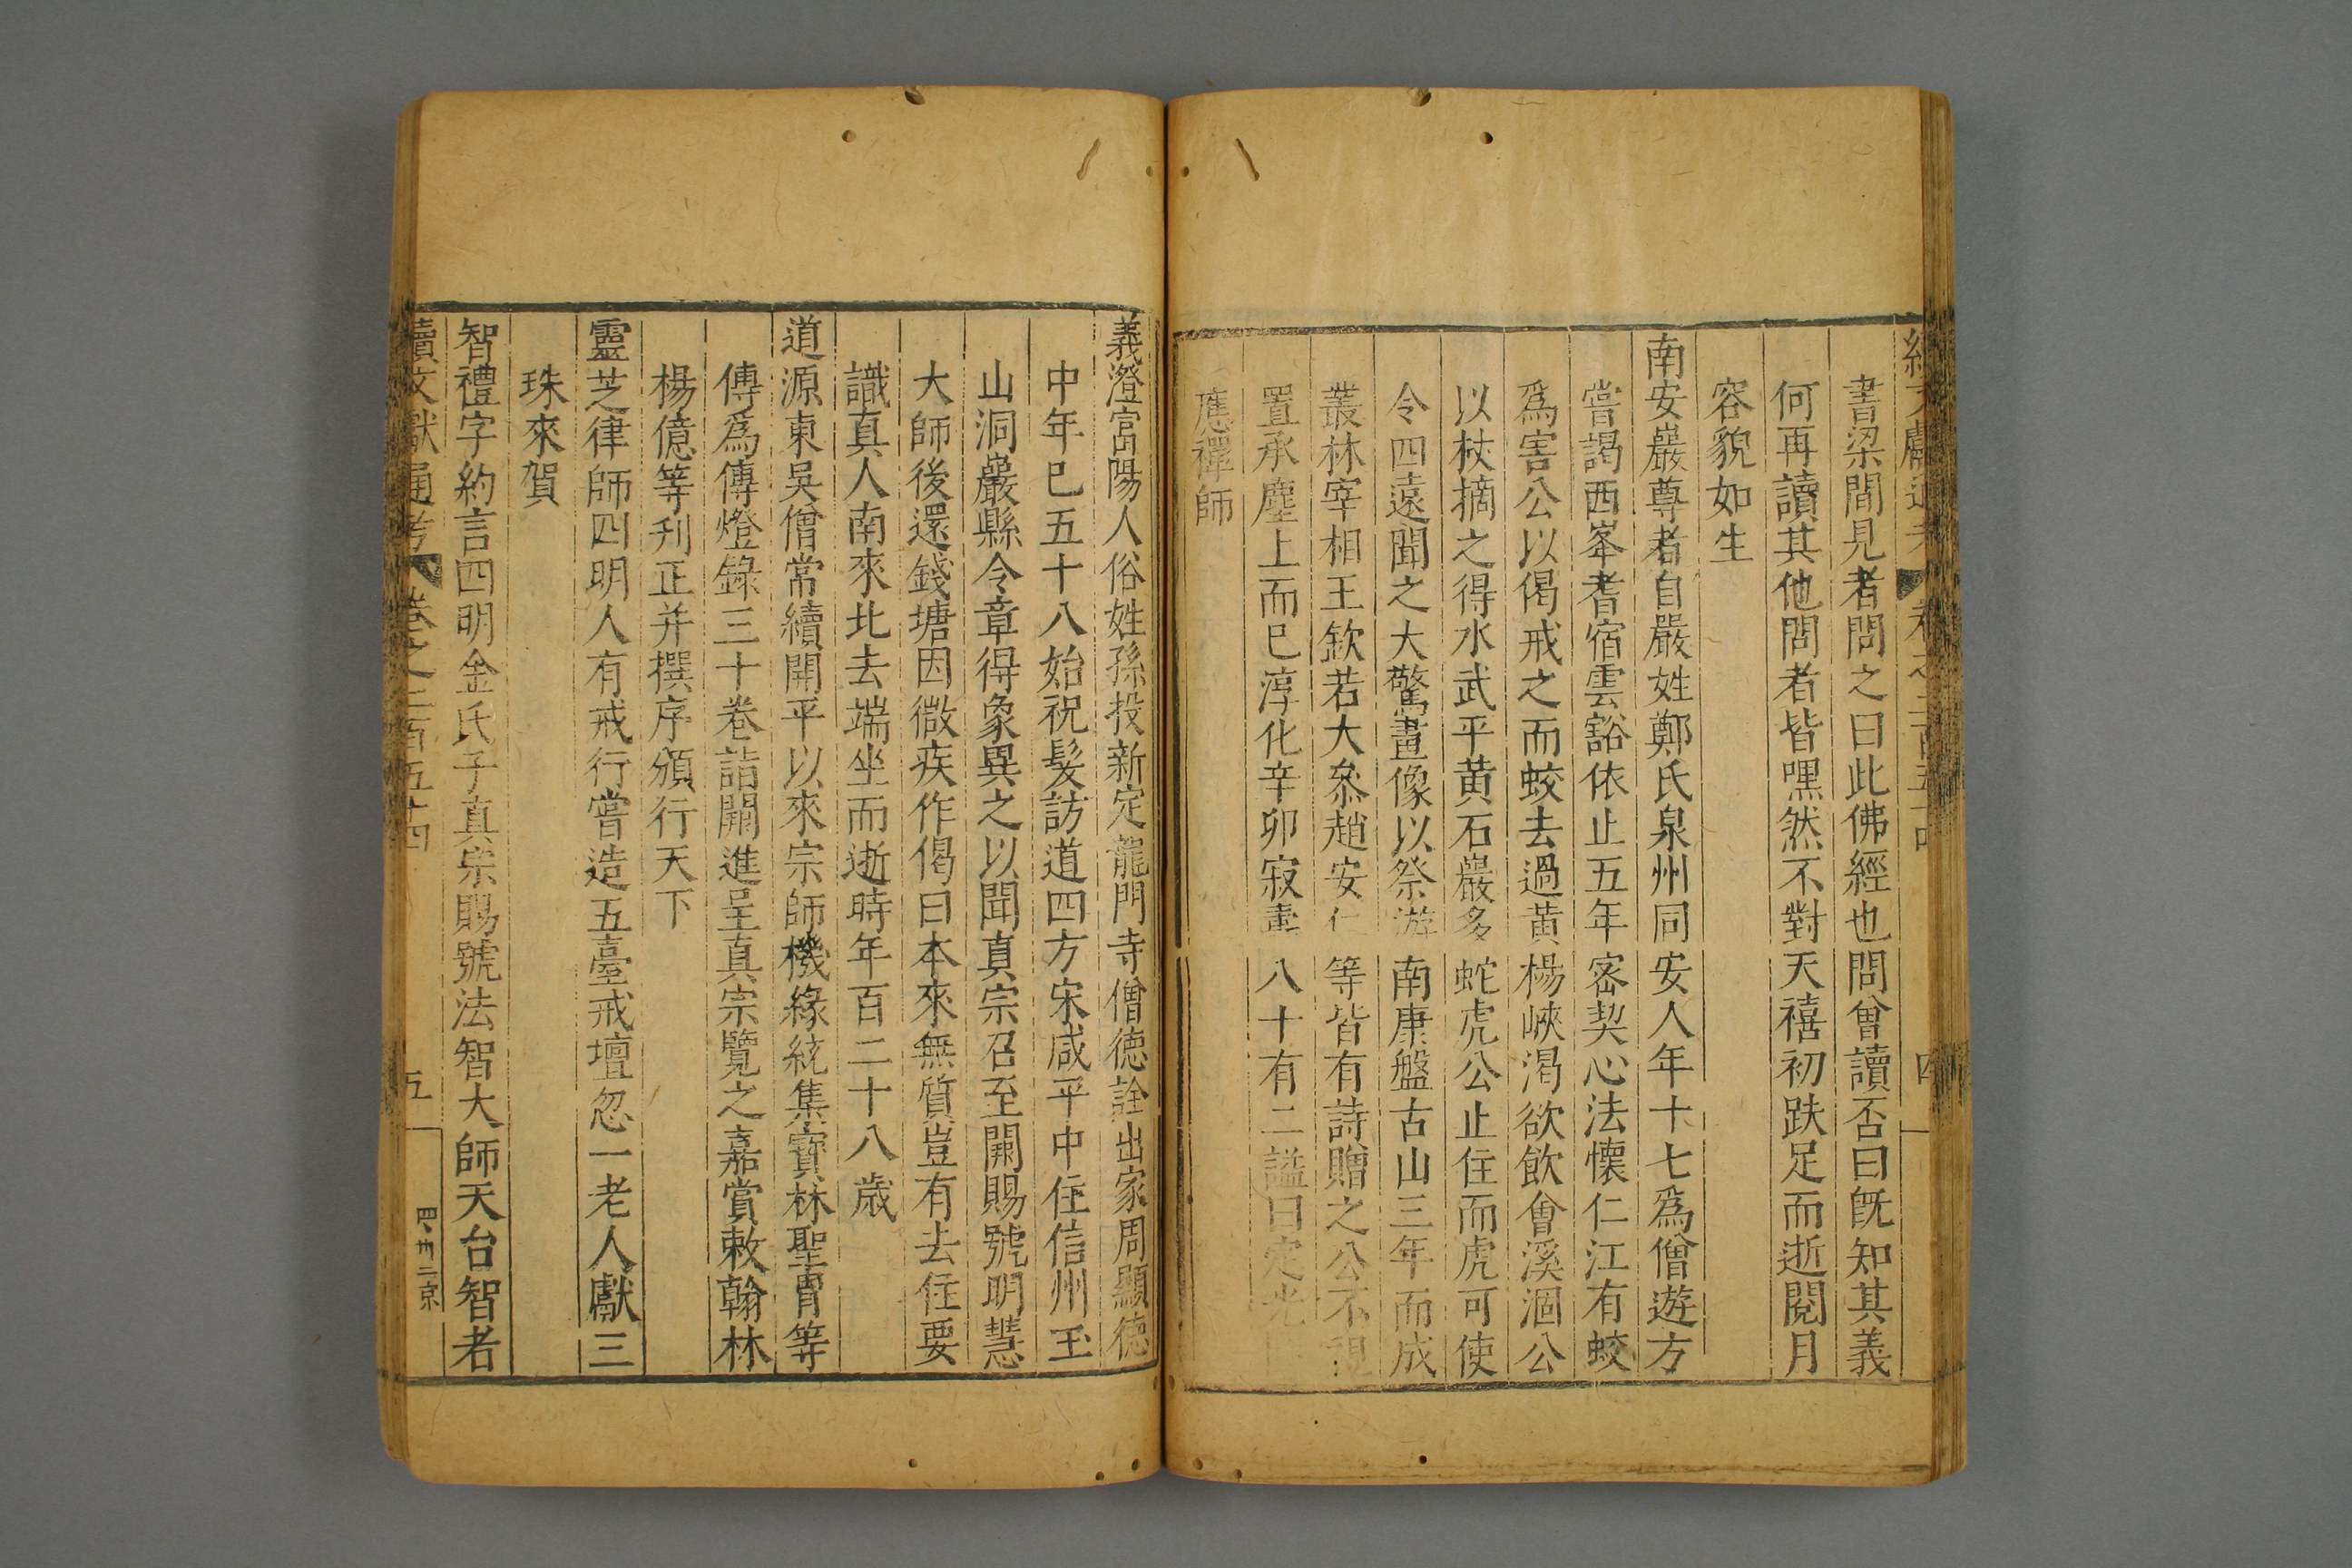 書梁間見者問之曰此佛經也問曾讀否曰旣知其義
何再讀其他問者皆嘿然不對天禧初趺足而逝閱月
容貌如生
南安巖尊者自嚴姓鄭氏泉州同安人年十七爲僧遊方
嘗謁西峯耆宿雲豁依止五年密契心法懷仁江有蛟
爲害公以偈戒之而蛟去過黃楊峽渴欲飲會溪涸公
以杖擿之得水武平黃石巖多蛇虎公止住而虎可使
令四遠聞之大驚畫像以祭遊南康盤古山三年而成
叢林宰相王欽若大叅趙安仁等皆有詩贈之公不視
置承塵上而已淳化辛卯寂壽八十有二諡曰定光
應禪師
義澄富陽人俗姓孫投新定龍門寺僧德詮出家周顯德
中年已五十八始祝髮訪道四方宋咸平中住信州玉
山洞巖縣令章得象異之以聞真宗召至闕賜號明慧
大師後還錢塘因微疾作偈曰本來無質豈有去住要
識真人南來北去端坐而逝時年百二十八歲
道源東吳僧常續開平以來宗師機緣統集寶林聖冑等
傳爲傳燈錄三十卷詣闕進呈真宗覽之嘉賞敕翰林
楊億等刋正并撰序頒行天下
靈芝律師四明人有戒行嘗造五臺戒壇忽一老人獻三
珠來賀
智禮字約言四明金氏子真宗賜號法智大師天台智者
續文獻通考 卷之二百五十四 五 四卅二京